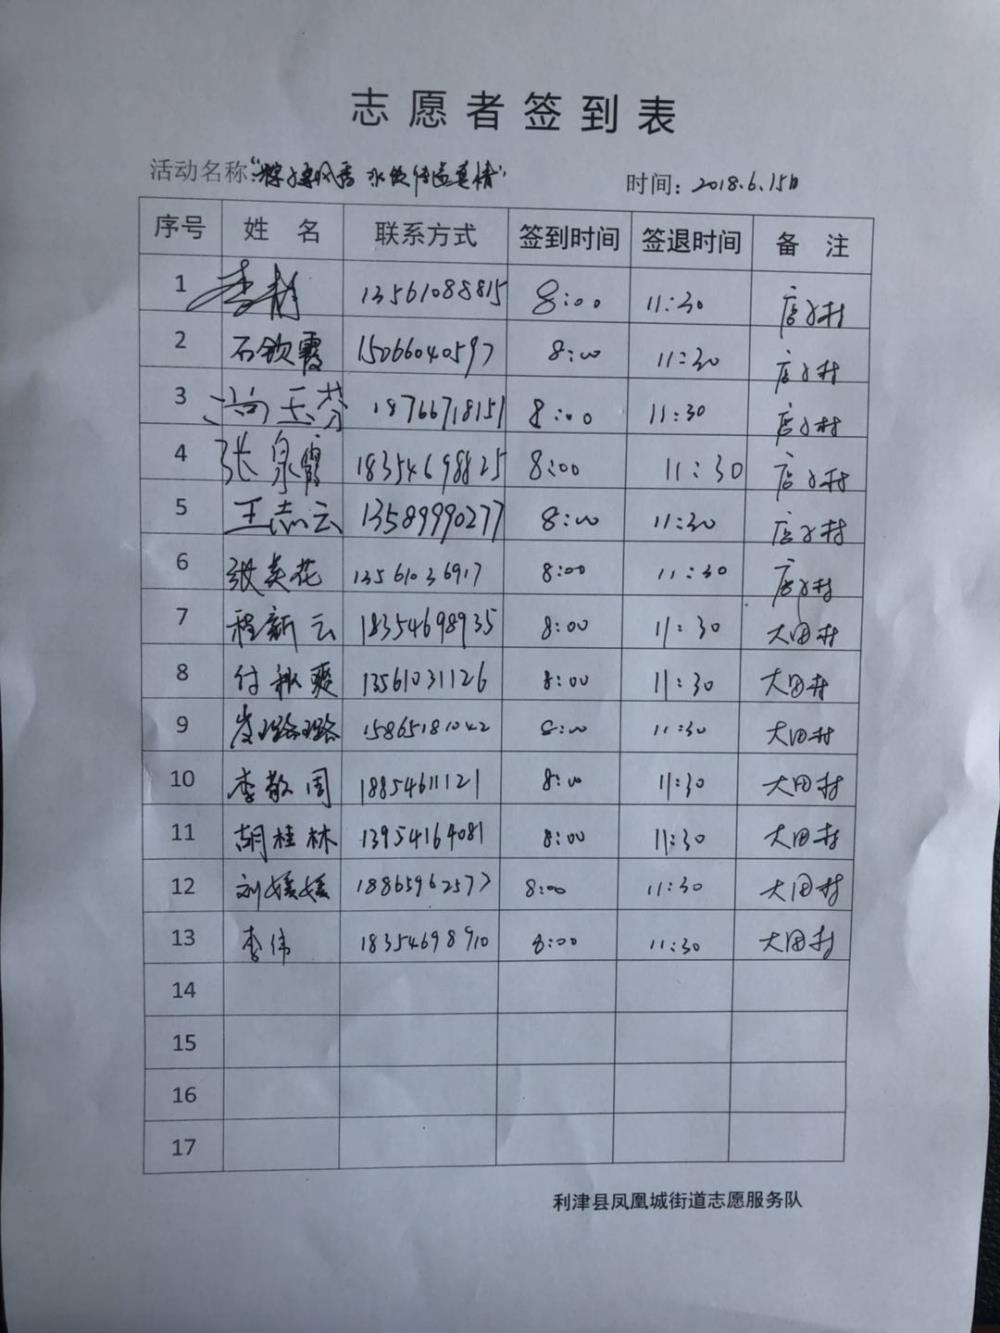 志愿者签到表
活动名称:
时间: 2018.6.15日
序号 姓 名 联系方式 签到时间 签退时间 备 注
1 李静 13561088815 8:00 11:30 店子村
2 石钦霞 15066040597 8:00 11:30 店子村
3 冯玉芬 18766718151 8:00 11:30 店子村
4 张泉霞 18354698825 8:00 11:30 店子村
5 王志云 13589990277 8:00 11:30 店子村
6 张英花 13561036917 8:00 11:30 店子村
7 程新云 18354698935 8:00 11:30 大田村
8 付秋爽 13561031126 8:00 11:30 大田村
9 璐璐 15865181042 8:00 11:30 大田村
10 李敬周 18854611121 8:00 11:30 大田村
11 胡桂林 13954164081 8:00 11:30 大田村
12 刘媛媛 18865962577 8:00 11:30 大田村
13 李伟 18354698910 8:00 11:30 大田村
14
15
16
17
利津县凤凰城街道志愿服务队